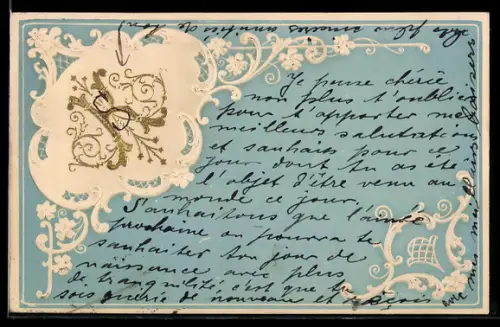 Je pense chérie
non plus t'oublier
pour t'apporter mes
meilleurs salutations
et souhaits pour ce
jour dont tu as été
l'objet d'être venu au
monde ce jour.
Souhaitons que l'année
prochaine on pourra te
souhaiter ton jour de
naissance avec plus
de tranquilité, c'est que tu
sois guérie de nouveau et reçois
avec mes meilleurs baisers